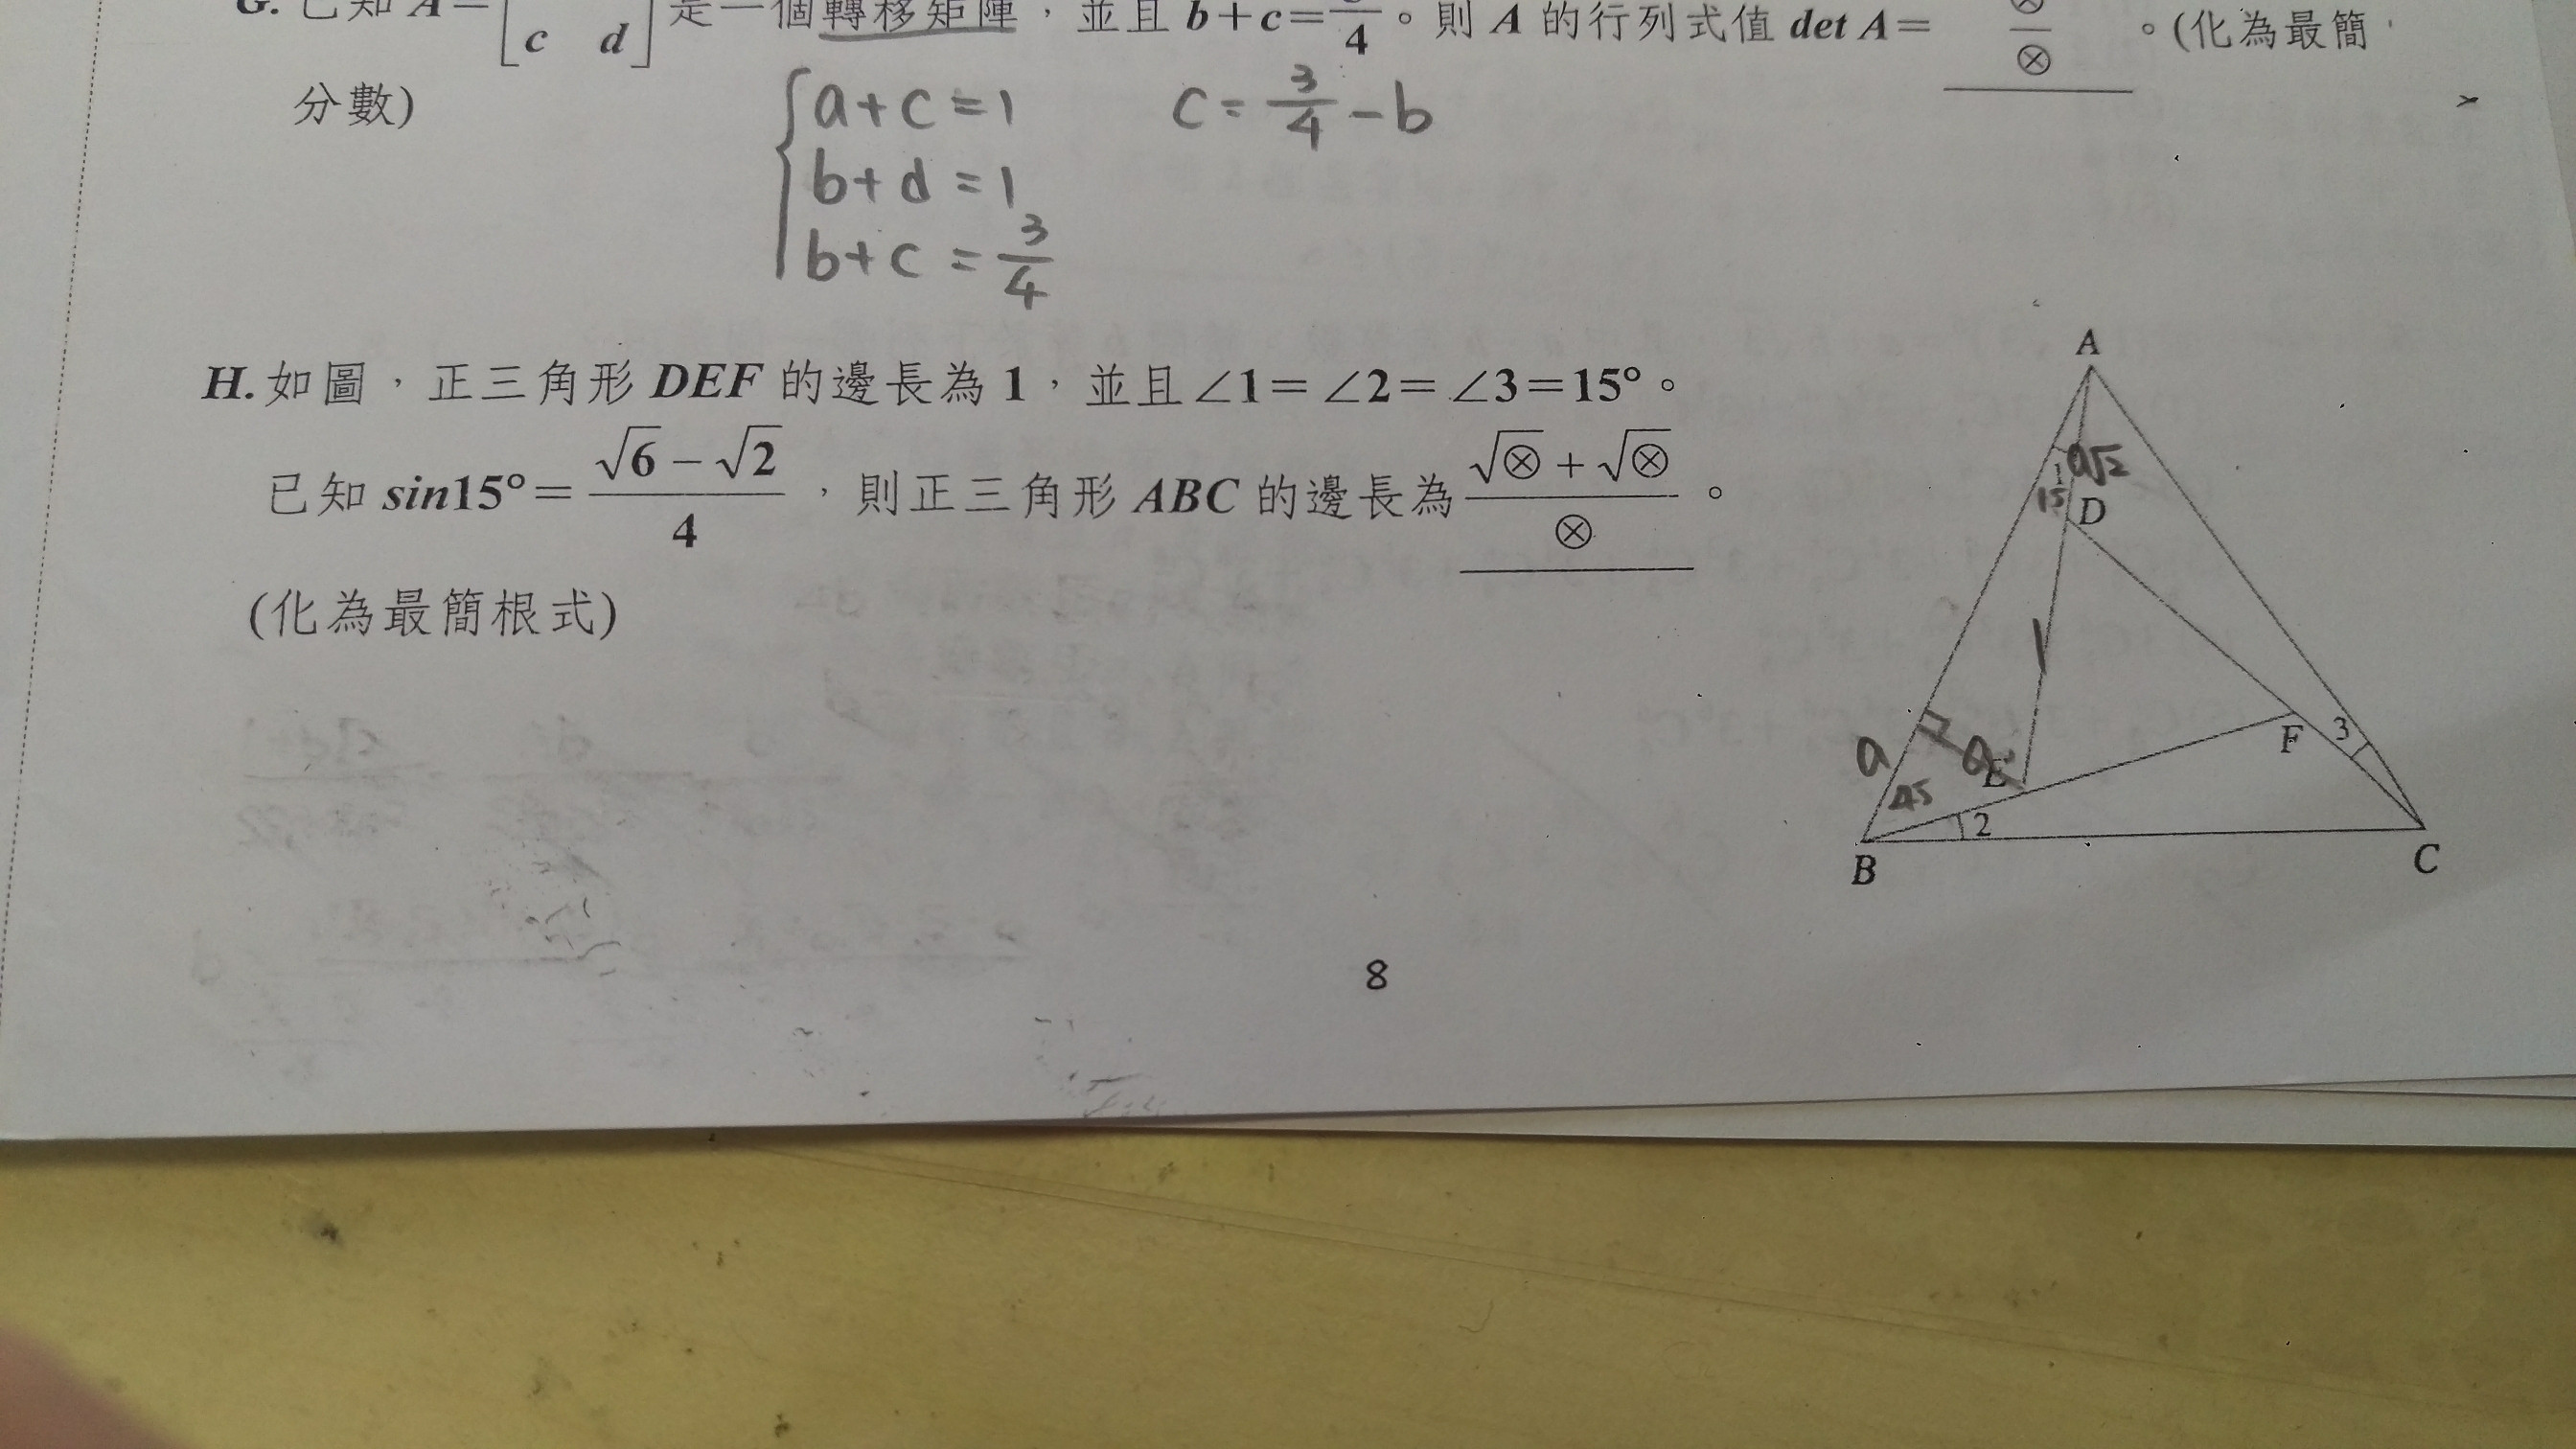 G. 已知 A=[ c d ] 是一個轉移矩陣，並且 b+c=3/4。則 A 的行列式值 det A= ⊗/⊗ 。(化為最簡
分數)
a+c=1
b+d=1
b+c=3/4
c=3/4-b
H. 如圖，正三角形 DEF 的邊長為 1，並且∠1=∠2=∠3=15°。
已知 sin15°=(√6-√2)/4，則正三角形 ABC 的邊長為 (√⊗+√⊗)/⊗ 。
(化為最簡根式)
A
1
a√2
15
D
1
a
a
E
45
F
3
2
B
C
8